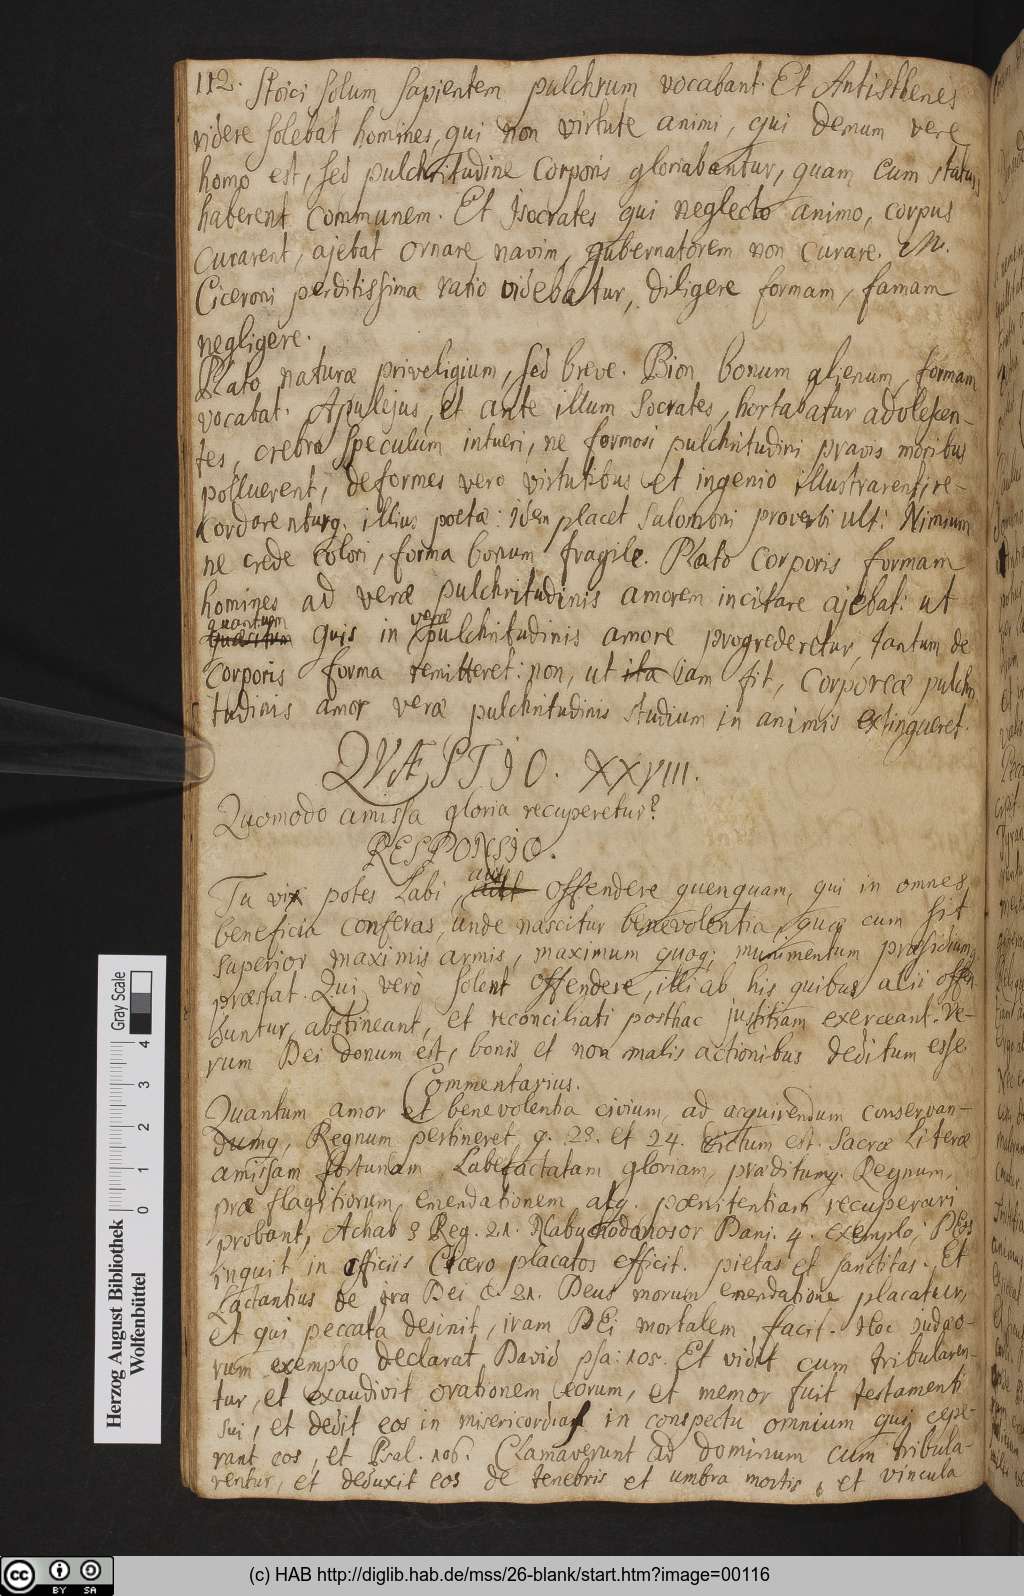 112. Stoici solum sapientem pulchrum vocabant. Et Antisthenes
ridere solebat homines, qui non virtute animi, qui demum vere
homo est, sed pulchritudine corporis gloriabantur, quam cum statuis
haberent communem. Et Isocrates qui neglecto animo, corpus
curarent, ajebat ornare navim, gubernatorem non curare. M.
Ciceroni perditissima ratio videbatur, diligere formam, famam
negligere.
Plato naturæ priveligium, sed breve. Bion bonum alienum, formam
vocabat. Apulejus, et ante illum Socrates, hortabatur adolescen-
tes, crebro speculum intueri, ne formosi pulchritudini pravis moribus
polluerent, deformes vero virtutibus et ingenio illustrarent, re-
cordarenturq. illius poetæ: Idem placet Salomoni proverbi ult: Nimium
ne crede colori, forma bonum fragile. Plato corporis formam
homines ad veræ pulchritudinis amorem incitare ajebat: ut
quantum veræ
quis in pulchritudinis amore progrederetur, tantum de
corporis forma remitteret: non, ut ita iam fit, corporeæ pulchri
tudinis amor veræ pulchritudinis studium in animis extingueret.
QVÆSTIO. XXVIII.
Quomodo amissa gloria recuperetur?
RESPONSIO.
Tu vix potes labi, aut offendere quenquam, qui in omnes
beneficia conferas, unde nascitur benevolentia, quæ cum sit
superior maximis armis, maximum quoq; munimentum præsidiumq
præstat. Qui verò solent offendere, illi ab his quibus alii offen
duntur, abstineant, et reconciliati posthac justitiam exerceant. Ve-
rum Dei donum est, bonis et non malis actionibus deditum esse.
Commentarius.
Quantum amor et benevolentia civium, ad acquirendum conservan-
dumq, Regnum pertineret, q. 23. et 24. dictum est. Sacræ literæ
amissam fortunam labefactatam gloriam, præditumq. Regnum,
præ flagitiorum, emendationem atq. pœnitentiam recuperari
probant, Achab 3 Reg. 21. Nabuchodonosor Dani. 4. exemplo, DEos
inquit in officiis Cicero placatos efficit. pietas et sanctitas. Et
Lactantius de ira Dei c. 21. Deus morum emendatione placatur,
et qui peccata desinit, iram DEi mortalem facit. Hoc Judæo-
rum exemplo declarat David psa: 105. Et vidit cum tribularen-
tur, et exaudivit orationem eorum, et memor fuit testamenti
sui, et dedit eos in misericordias in conspectu omnium qui cepe-
rant eos, et Psal. 106. Clamaverunt ad dominum cum tribula-
rentur, et deduxit eos de tenebris et umbra mortis, et vincula
Herzog August Bibliothek
Wolfenbüttel
0 1 2 3 4
Gray Scale
cc BY SA
(c) HAB http://diglib.hab.de/mss/26-blank/start.htm?image=00116